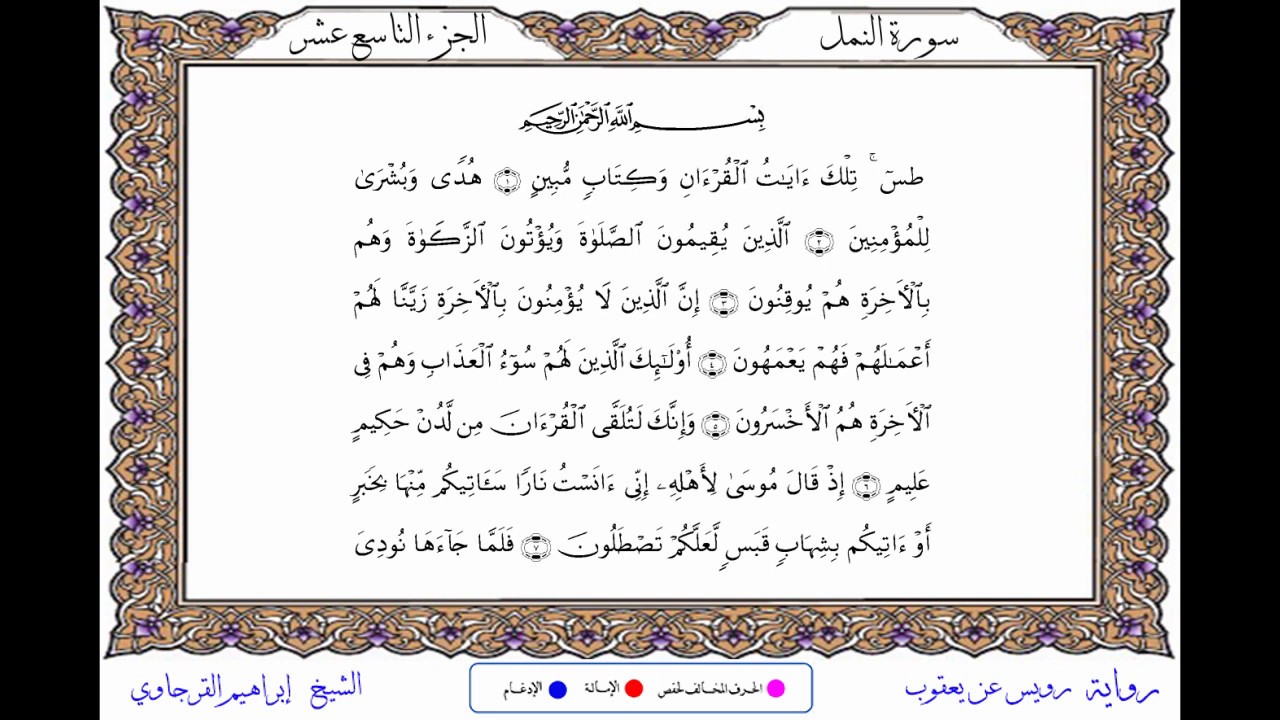 سورة النمل
الجزء التاسع عشر
بِسْمِ ٱللَّهِ ٱلرَّحْمَٰنِ ٱلرَّحِيمِ
طسٓ ۚ تِلْكَ ءَايَٰتُ ٱلْقُرْءَانِ وَكِتَابٍ مُّبِينٍ ١ هُدًى وَبُشْرَىٰ
لِلْمُؤْمِنِينَ ٢ ٱلَّذِينَ يُقِيمُونَ ٱلصَّلَوٰةَ وَيُؤْتُونَ ٱلزَّكَوٰةَ وَهُم
بِٱلْأَخِرَةِ هُمْ يُوقِنُونَ ٣ إِنَّ ٱلَّذِينَ لَا يُؤْمِنُونَ بِٱلْأَخِرَةِ زَيَّنَّا لَهُمْ
أَعْمَٰلَهُمْ فَهُمْ يَعْمَهُونَ ٤ أُوْلَٰٓئِكَ ٱلَّذِينَ لَهُمْ سُوٓءُ ٱلْعَذَابِ وَهُمْ فِى
ٱلْأَخِرَةِ هُمُ ٱلْأَخْسَرُونَ ٥ وَإِنَّكَ لَتُلَقَّى ٱلْقُرْءَانَ مِن لَّدُنْ حَكِيمٍ
عَلِيمٍ ٦ إِذْ قَالَ مُوسَىٰ لِأَهْلِهِۦ إِنِّى ءَانَسْتُ نَارًا سَـَٔاتِيكُم مِّنْهَا بِخَبَرٍ
أَوْ ءَاتِيكُم بِشِهَابٍ قَبَسٍ لَّعَلَّكُمْ تَصْطَلُونَ ٧ فَلَمَّا جَآءَهَا نُودِىَ
رواية رويس عن يعقوب
الحرف المخالف لحفص
الإمالة
الإدغام
الشيخ إبراهيم القرجاوي